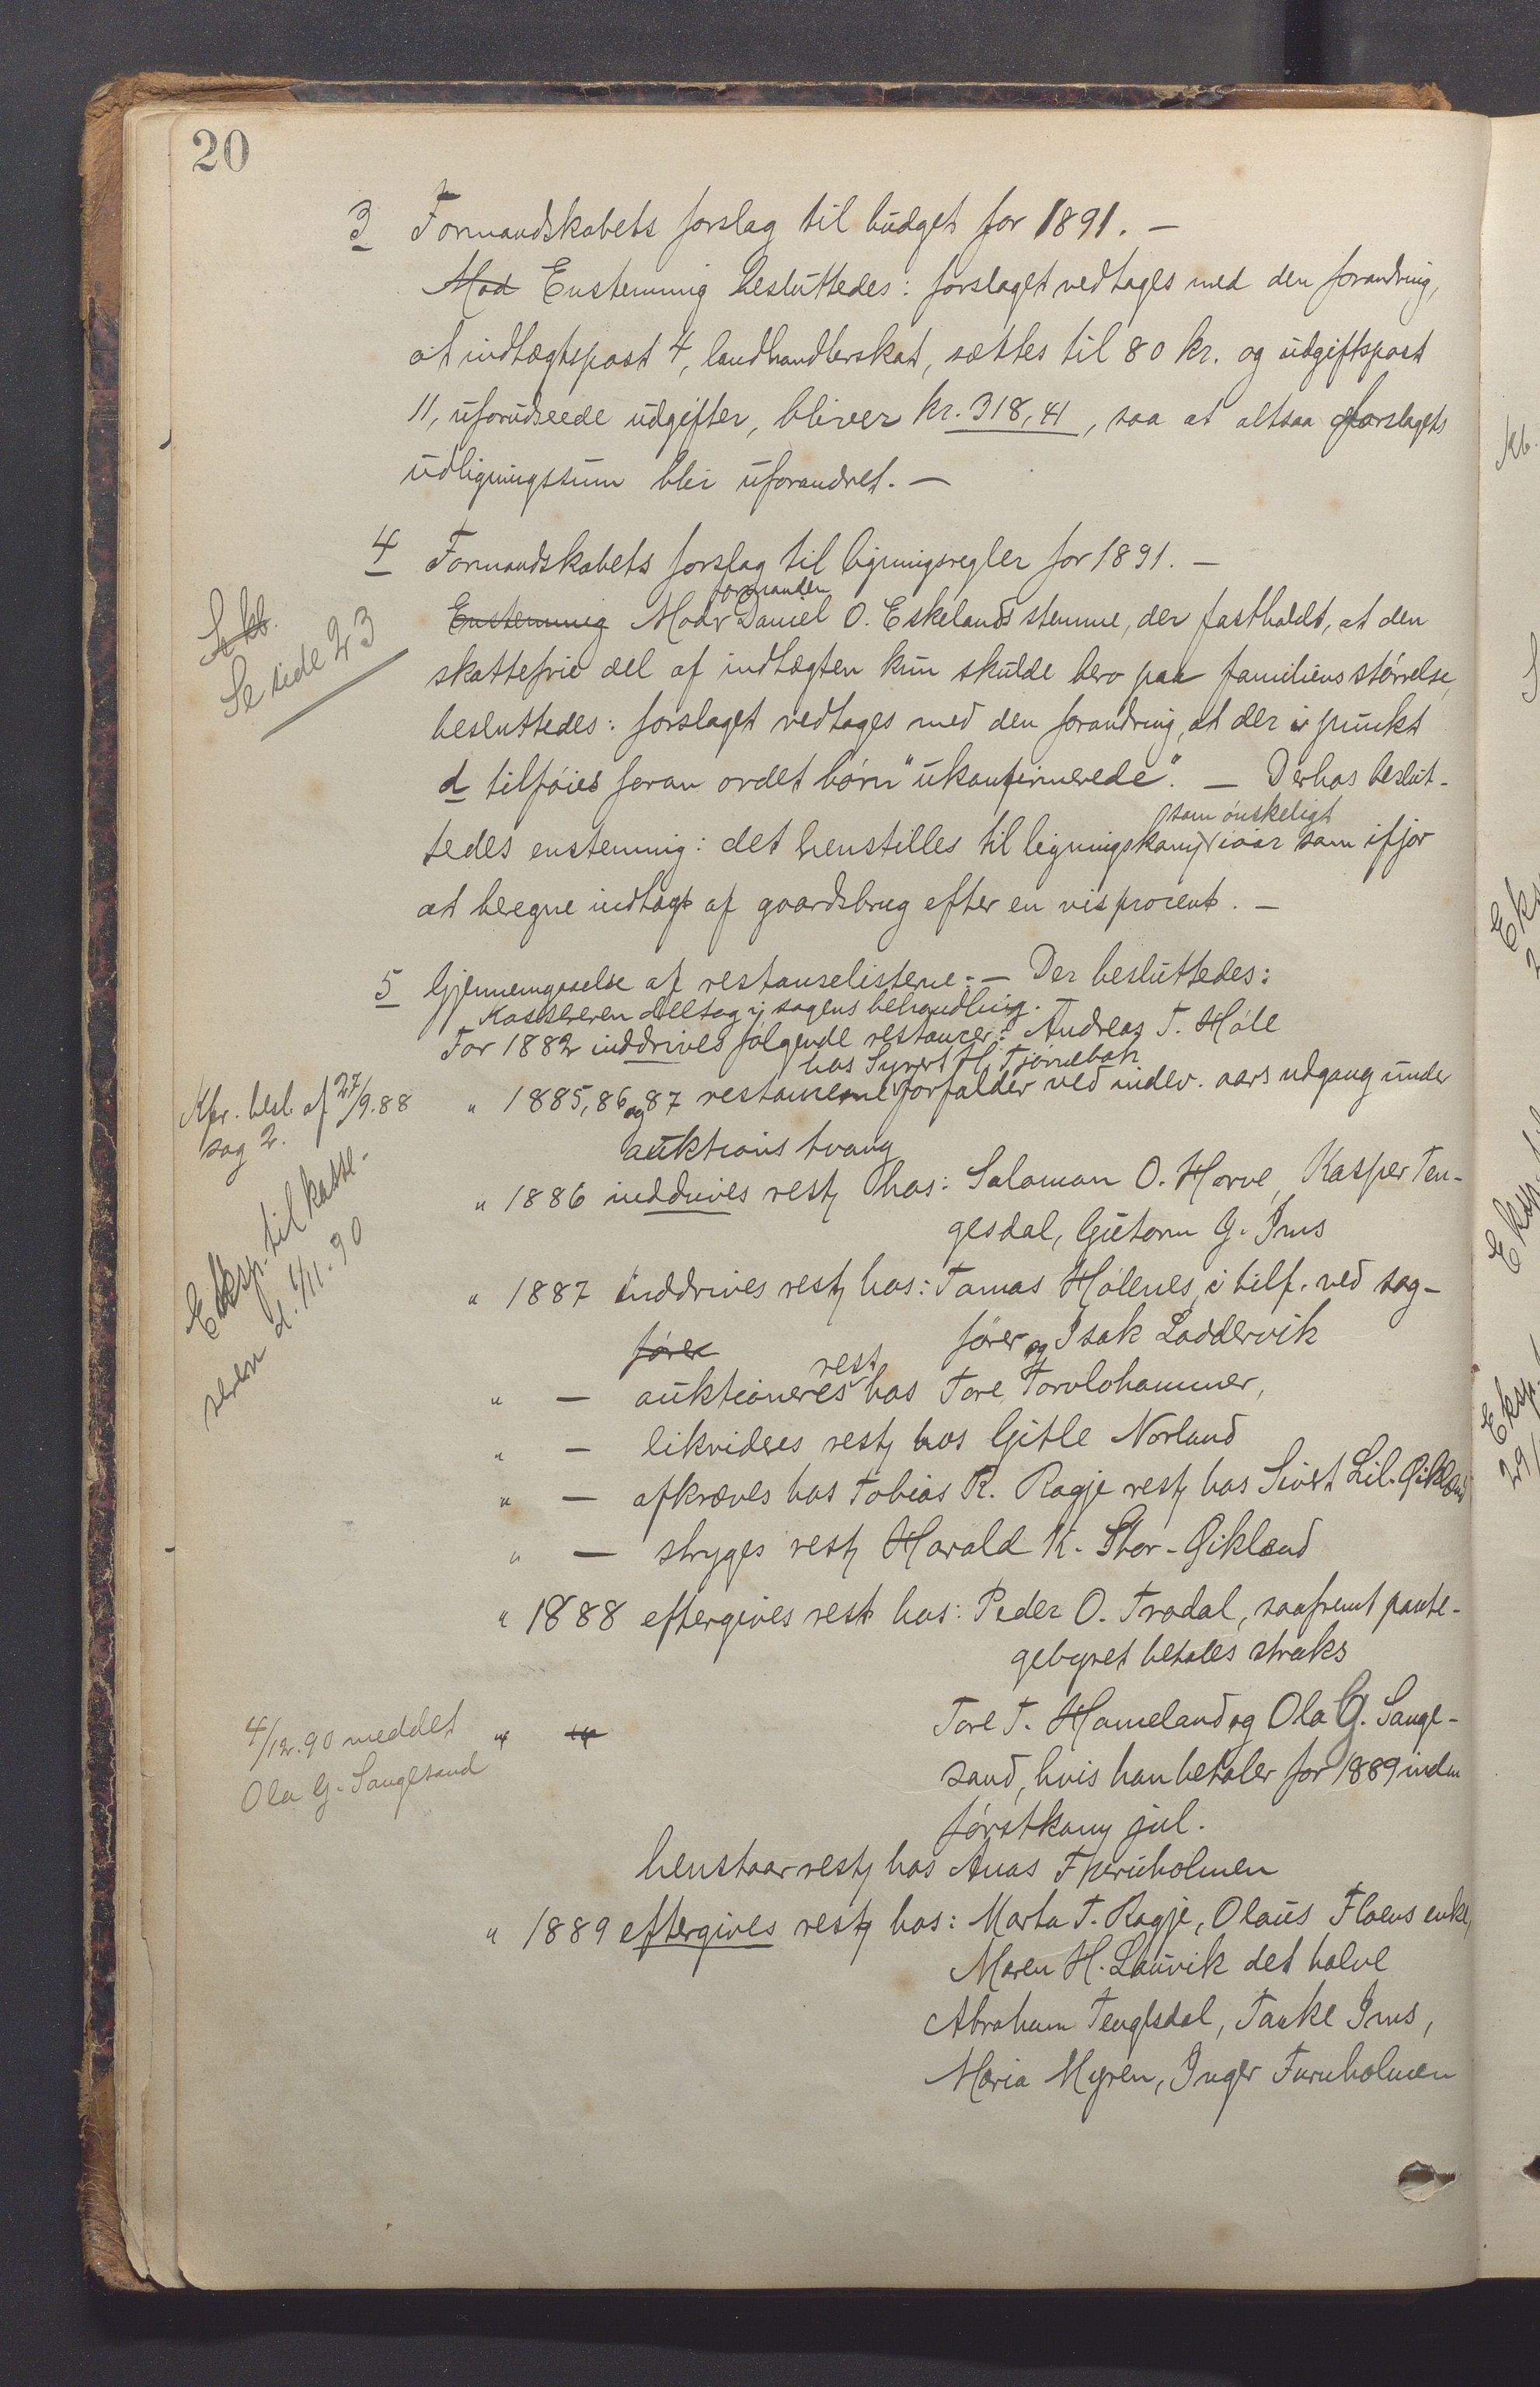 20
3 Formandskabets forslag til budget for 1891. –
Mod Enstemmig besluttedes: forslaget vedtages med den forandring,
at indtægtspost 4, landhandlerskat, sættes til 80 kr. og udgiftspost
11, uforudseede udgifter, bliver kr. 318,41, saa at altsaa forslagets
udligningssum blir uforandret. –
4 Formandskabets forslag til ligningsregler for 1891. –
Skb.
Se side 23
formanden
Enstemmig Mod Daniel O. Eskelands stemme, der fastholdt, at den
skattefrie del af indtægten kun skulde bero paa familiens størrelse,
besluttedes: forslaget vedtages med den forandring, at der i punkt
d tilføies foran ordet børn "ukonfirmerede". – Derhos beslut-
som ønskeligt
tedes enstemmig: det henstilles til ligningskom. iaar som ifjor
at beregne indtægt af gaardsbrug efter en vis procent. –
5 Gjennemgaaelse af restanselistene. – Der besluttedes:
Kassereren deltog i sagens behandling.
For 1882 inddrives følgende restanser: Andreas T. Høle
hos Syvert H. Tjørnebak
Kfr. besl. af 27/9.88
sag 2.
" 1885, 86 og 87 restanserne forfalder ved indev. aars udgang under
auktions tvang
" 1886 inddrives rest. hos: Salomon O. Horve, Kasper Ten-
gesdal, Gutorm G. Ims
Eksp. til kasse-
reren d. 1/11.90
" 1887 inddrives rest. hos: Tomas Hølenes, i tilf. ved sag-
fører fører og Isak Loddervik
rest.
" – auktioneres hos Tore Torvlohammer,
" – likvideres rest. hos Gitle Norland
" – afkræves hos Tobias R. Ragje rest. hos Sivert Lil. Oiklend
" – stryges rest. Harald K. Stor-Oiklend
" 1888 eftergives rest. hos: Peder O. Trodal, saafremt pante-
gebyret betales straks
4/12.90 meddelt
Ola G. Sangesand
" " Tore T. Hameland og Ola G. Sange-
sand, hvis han betaler for 1889 inden
førstkom. jul.
henstaar rest. hos Anas Furuholmen
" 1889 eftergives rest. hos: Marta T. Ragje, Olaus Floens enke,
Maren H. Lauvik det halve
Abraham Tengesdal, Taske Ims,
Maria Myren, Inger Furuholmen